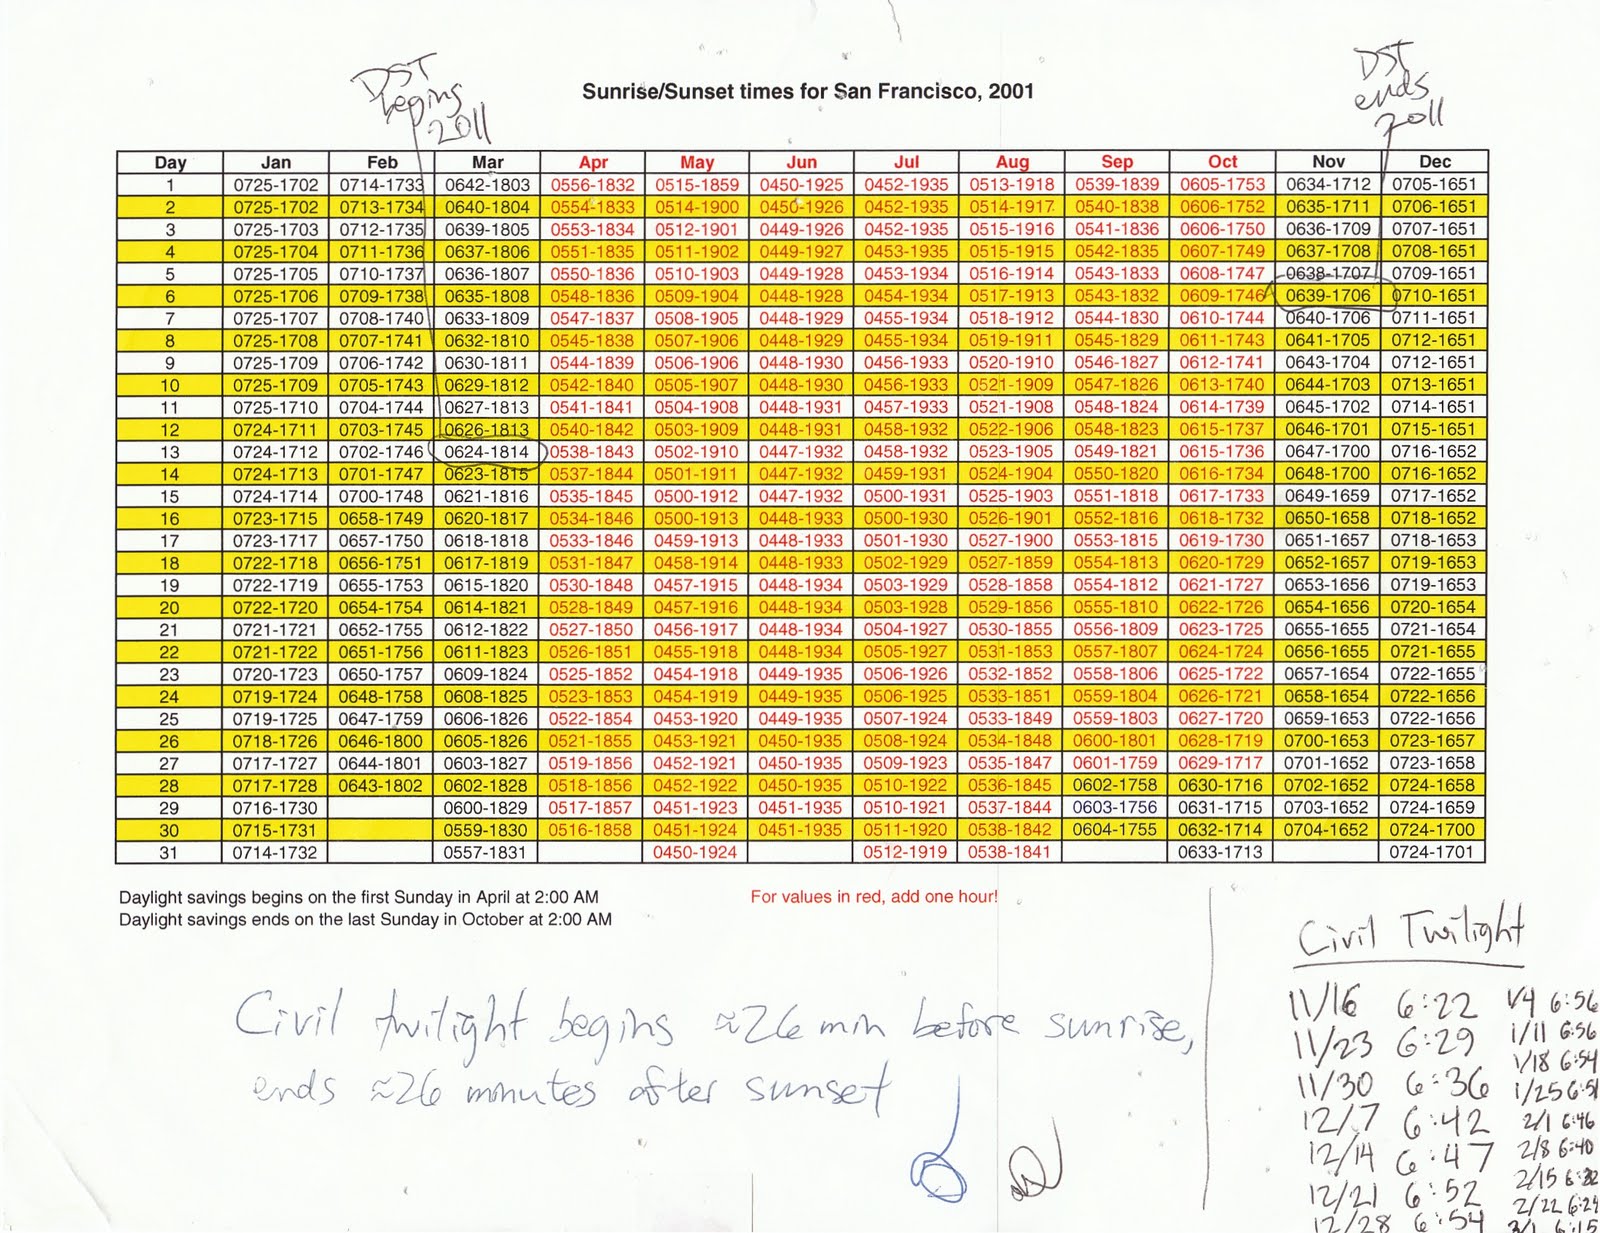 DST
begins
2011
DST
ends
2011
Sunrise/Sunset times for San Francisco, 2001
Day Jan Feb Mar Apr May Jun Jul Aug Sep Oct Nov Dec
1 0725-1702 0714-1733 0642-1803 0556-1832 0515-1859 0450-1925 0452-1935 0513-1918 0539-1839 0605-1753 0634-1712 0705-1651
2 0725-1702 0713-1734 0640-1804 0554-1833 0514-1900 0450-1926 0452-1935 0514-1917 0540-1838 0606-1752 0635-1711 0706-1651
3 0725-1703 0712-1735 0639-1805 0553-1834 0512-1901 0449-1926 0452-1935 0515-1916 0541-1836 0606-1750 0636-1709 0707-1651
4 0725-1704 0711-1736 0637-1806 0551-1835 0511-1902 0449-1927 0453-1935 0515-1915 0542-1835 0607-1749 0637-1708 0708-1651
5 0725-1705 0710-1737 0636-1807 0550-1836 0510-1903 0449-1928 0453-1934 0516-1914 0543-1833 0608-1747 0638-1707 0709-1651
6 0725-1706 0709-1738 0635-1808 0548-1836 0509-1904 0448-1928 0454-1934 0517-1913 0543-1832 0609-1746 0639-1706 0710-1651
7 0725-1707 0708-1740 0633-1809 0547-1837 0508-1905 0448-1929 0455-1934 0518-1912 0544-1830 0610-1744 0640-1706 0711-1651
8 0725-1708 0707-1741 0632-1810 0545-1838 0507-1906 0448-1929 0455-1934 0519-1911 0545-1829 0611-1743 0641-1705 0712-1651
9 0725-1709 0706-1742 0630-1811 0544-1839 0506-1906 0448-1930 0456-1933 0520-1910 0546-1827 0612-1741 0643-1704 0712-1651
10 0725-1709 0705-1743 0629-1812 0542-1840 0505-1907 0448-1930 0456-1933 0521-1909 0547-1826 0613-1740 0644-1703 0713-1651
11 0725-1710 0704-1744 0627-1813 0541-1841 0504-1908 0448-1931 0457-1933 0521-1908 0548-1824 0614-1739 0645-1702 0714-1651
12 0724-1711 0703-1745 0626-1813 0540-1842 0503-1909 0448-1931 0458-1932 0522-1906 0548-1823 0615-1737 0646-1701 0715-1651
13 0724-1712 0702-1746 0624-1814 0538-1843 0502-1910 0447-1932 0458-1932 0523-1905 0549-1821 0615-1736 0647-1700 0716-1652
14 0724-1713 0701-1747 0623-1815 0537-1844 0501-1911 0447-1932 0459-1931 0524-1904 0550-1820 0616-1734 0648-1700 0716-1652
15 0724-1714 0700-1748 0621-1816 0535-1845 0500-1912 0447-1932 0500-1931 0525-1903 0551-1818 0617-1733 0649-1659 0717-1652
16 0723-1715 0658-1749 0620-1817 0534-1846 0500-1913 0448-1933 0500-1930 0526-1901 0552-1816 0618-1732 0650-1658 0718-1652
17 0723-1717 0657-1750 0618-1818 0533-1846 0459-1913 0448-1933 0501-1930 0527-1900 0553-1815 0619-1730 0651-1657 0718-1653
18 0722-1718 0656-1751 0617-1819 0531-1847 0458-1914 0448-1933 0502-1929 0527-1859 0554-1813 0620-1729 0652-1657 0719-1653
19 0722-1719 0655-1753 0615-1820 0530-1848 0457-1915 0448-1934 0503-1929 0528-1858 0554-1812 0621-1727 0653-1656 0719-1653
20 0722-1720 0654-1754 0614-1821 0528-1849 0457-1916 0448-1934 0503-1928 0529-1856 0555-1810 0622-1726 0654-1656 0720-1654
21 0721-1721 0652-1755 0612-1822 0527-1850 0456-1917 0448-1934 0504-1927 0530-1855 0556-1809 0623-1725 0655-1655 0721-1654
22 0721-1722 0651-1756 0611-1823 0526-1851 0455-1918 0448-1934 0505-1927 0531-1853 0557-1807 0624-1724 0656-1655 0721-1655
23 0720-1723 0650-1757 0609-1824 0525-1852 0454-1918 0449-1935 0506-1926 0532-1852 0558-1806 0625-1722 0657-1654 0722-1655
24 0719-1724 0648-1758 0608-1825 0523-1853 0454-1919 0449-1935 0506-1925 0533-1851 0559-1804 0626-1721 0658-1654 0722-1656
25 0719-1725 0647-1759 0606-1826 0522-1854 0453-1920 0449-1935 0507-1924 0533-1849 0559-1803 0627-1720 0659-1653 0722-1656
26 0718-1726 0646-1800 0605-1826 0521-1855 0453-1921 0450-1935 0508-1924 0534-1848 0600-1801 0628-1719 0700-1653 0723-1657
27 0717-1727 0644-1801 0603-1827 0519-1856 0452-1921 0450-1935 0509-1923 0535-1847 0601-1759 0629-1717 0701-1652 0723-1658
28 0717-1728 0643-1802 0602-1828 0518-1856 0452-1922 0450-1935 0510-1922 0536-1845 0602-1758 0630-1716 0702-1652 0724-1658
29 0716-1730 0600-1829 0517-1857 0451-1923 0451-1935 0510-1921 0537-1844 0603-1756 0631-1715 0703-1652 0724-1659
30 0715-1731 0559-1830 0516-1858 0451-1924 0451-1935 0511-1920 0538-1842 0604-1755 0632-1714 0704-1652 0724-1700
31 0714-1732 0557-1831 0450-1924 0512-1919 0538-1841 0633-1713 0724-1701
Daylight savings begins on the first Sunday in April at 2:00 AM
For values in red, add one hour!
Daylight savings ends on the last Sunday in October at 2:00 AM
Civil twilight begins ≈26 min before sunrise,
ends ≈26 minutes after sunset
Civil Twilight
11/16 6:22 1/4 6:56
11/23 6:29 1/11 6:56
11/30 6:36 1/18 6:54
12/7 6:42 1/25 6:51
12/14 6:47 2/1 6:46
12/21 6:52 2/8 6:40
12/28 6:54 2/15 6:32
2/22 6:24
3/1 6:15